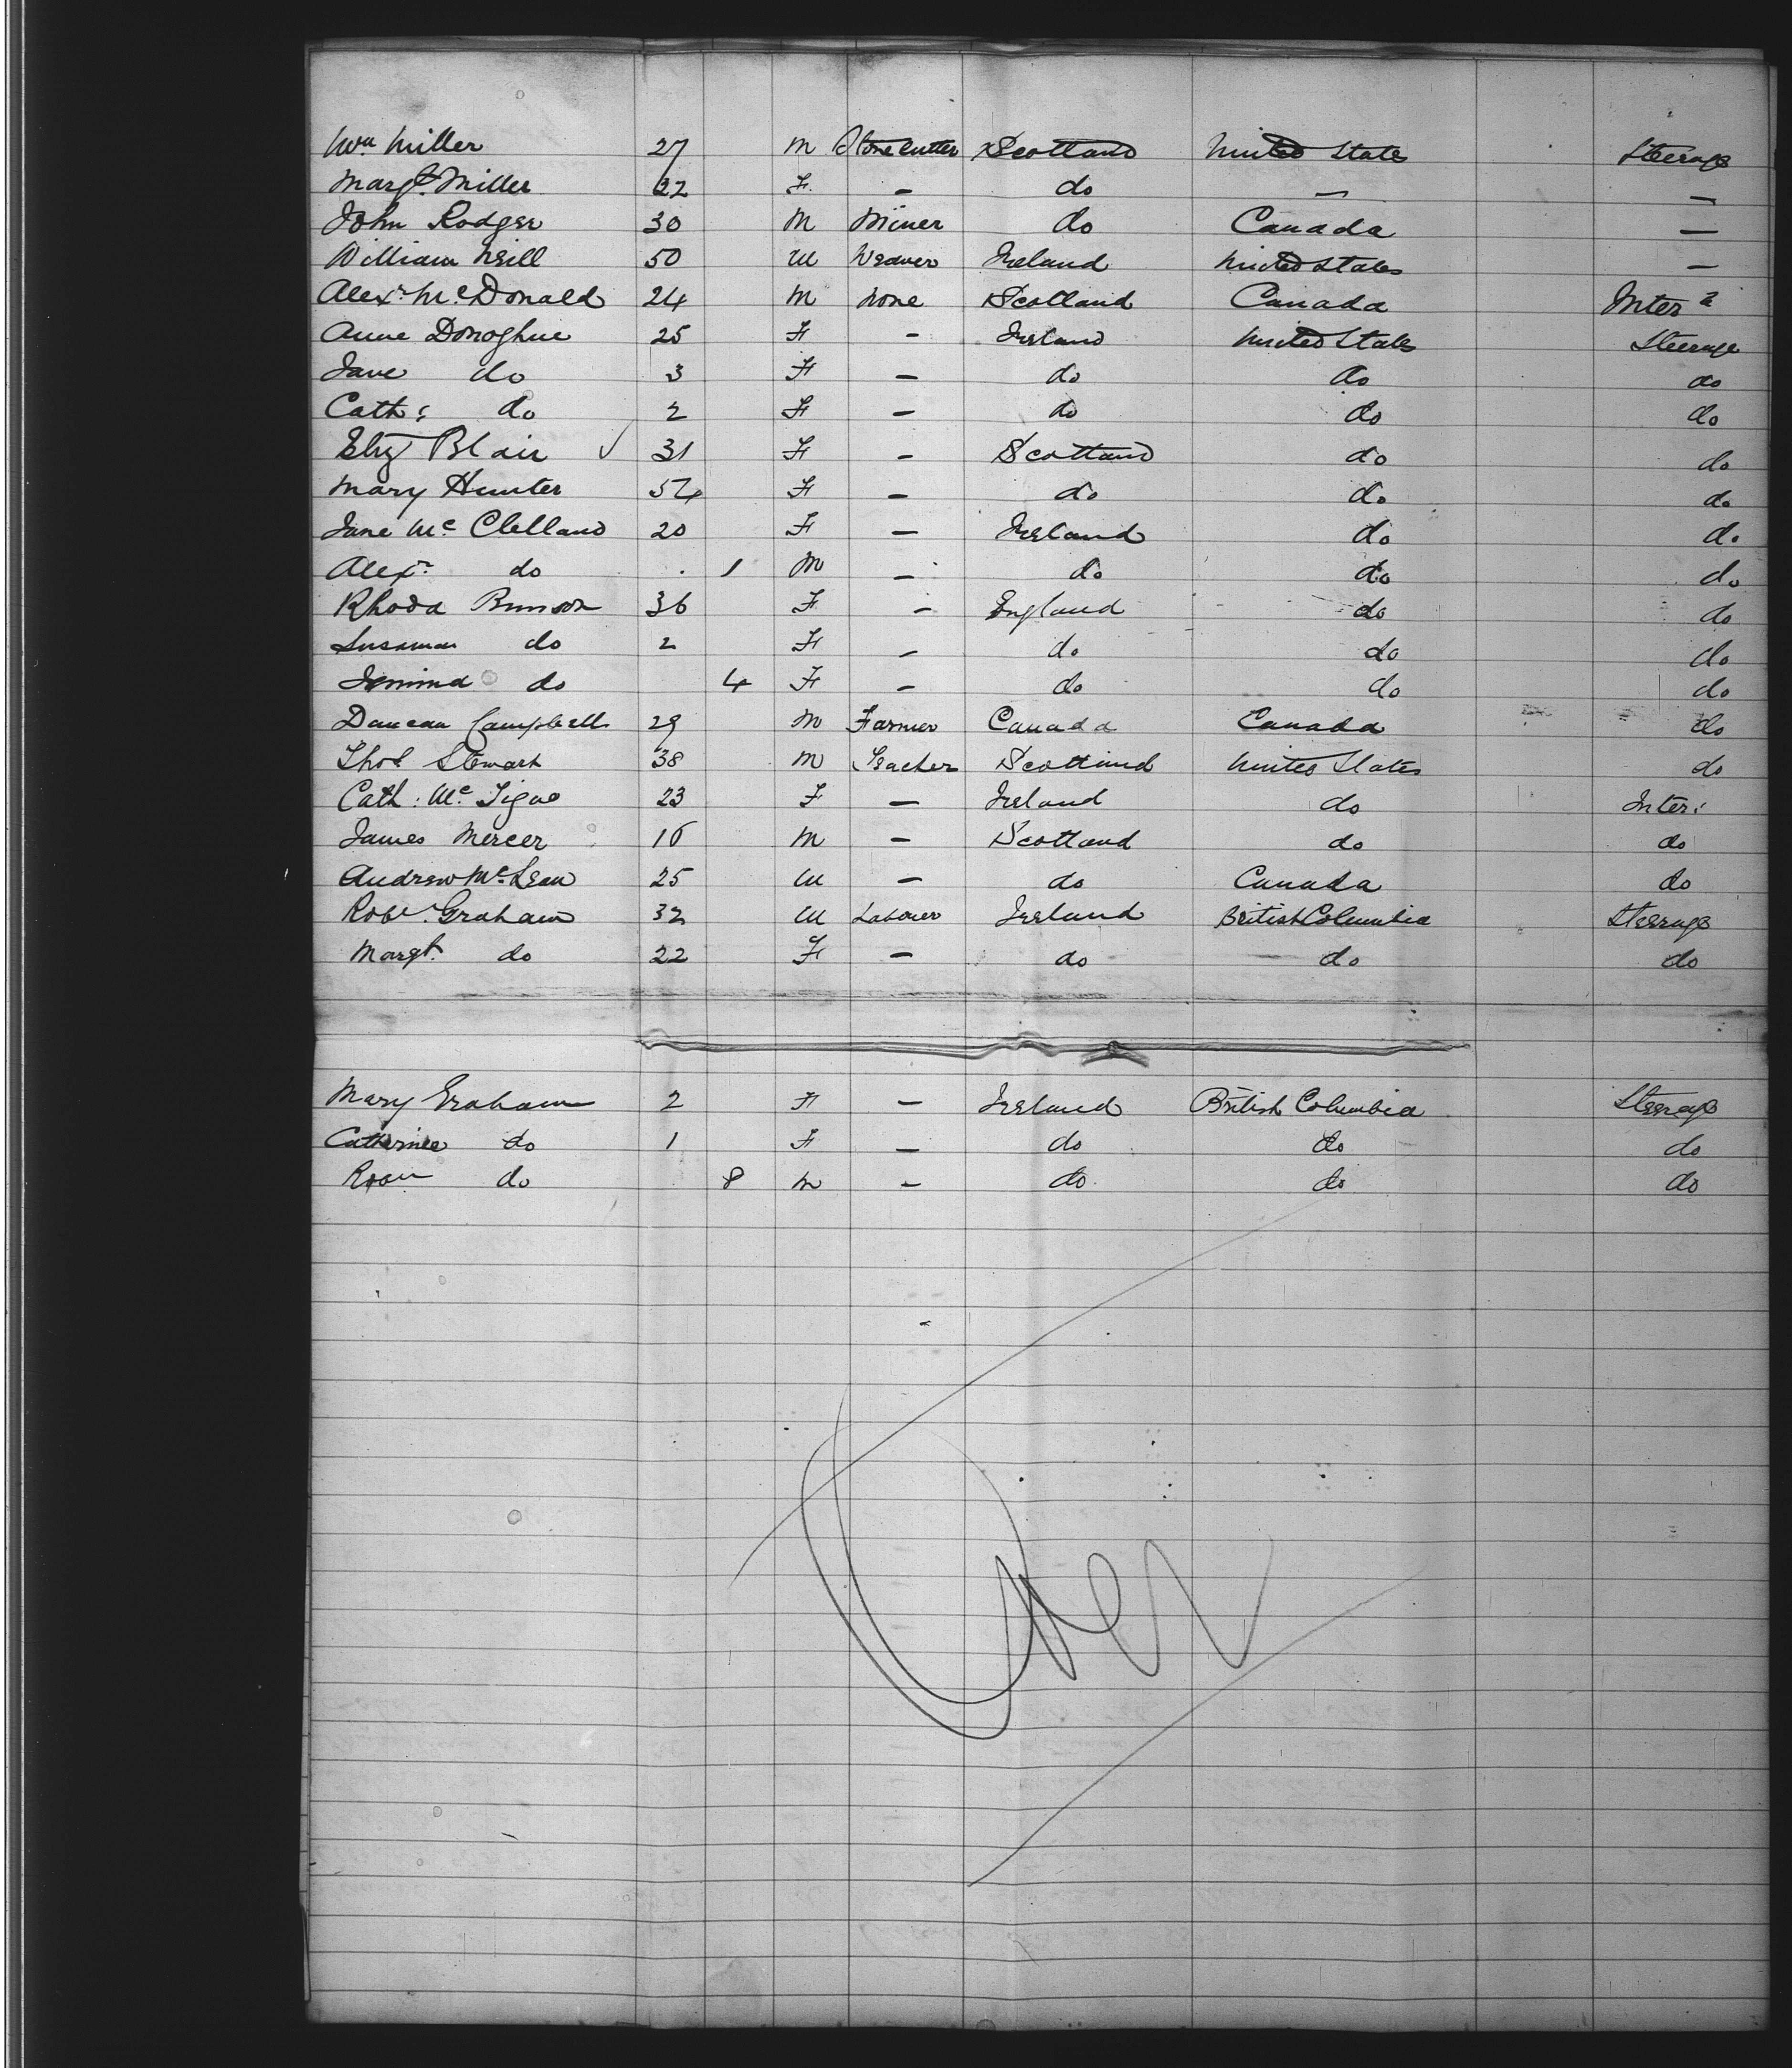 Wm Miller 27 M Stone Cutter Scotland United States Steerage
Margt. Miller 22 F. – do – –
John Rodger 30 M Miner do Canada –
William Neill 50 M Weaver Ireland United States –
Alexr. McDonald 24 M None Scotland Canada Inter
Anne Donoghue 25 F – Ireland United States Steerage
Jane do 3 F – do do do
Cath: do 2 F – do do do
Eliz Blair ✓ 31 F – Scotland do do
Mary Hunter 54 F – do do do
Jane Mc Clelland 20 F – Ireland do do
Alexr. do 1 M – do do do
Rhoda 36 F – England do do
Susanna do 2 F – do do do
Jemima do 4 F – do do do
Duncan Campbell 29 M Farmer Canada Canada do
Thos Stewart 38 M Teacher Scotland United States do
Cath: Mc Tigue 23 F – Ireland do Inter:
James Mercer 16 M – Scotland do do
Andrew McLean 25 M – do Canada do
Robt. Graham 32 M Labourer Ireland British Columbia Steerage
Margt. do 22 F – do do do
Mary Graham 2 F – Ireland British Columbia Steerage
Catherine do 1 F – do do do
do 8 M – do do do
Over